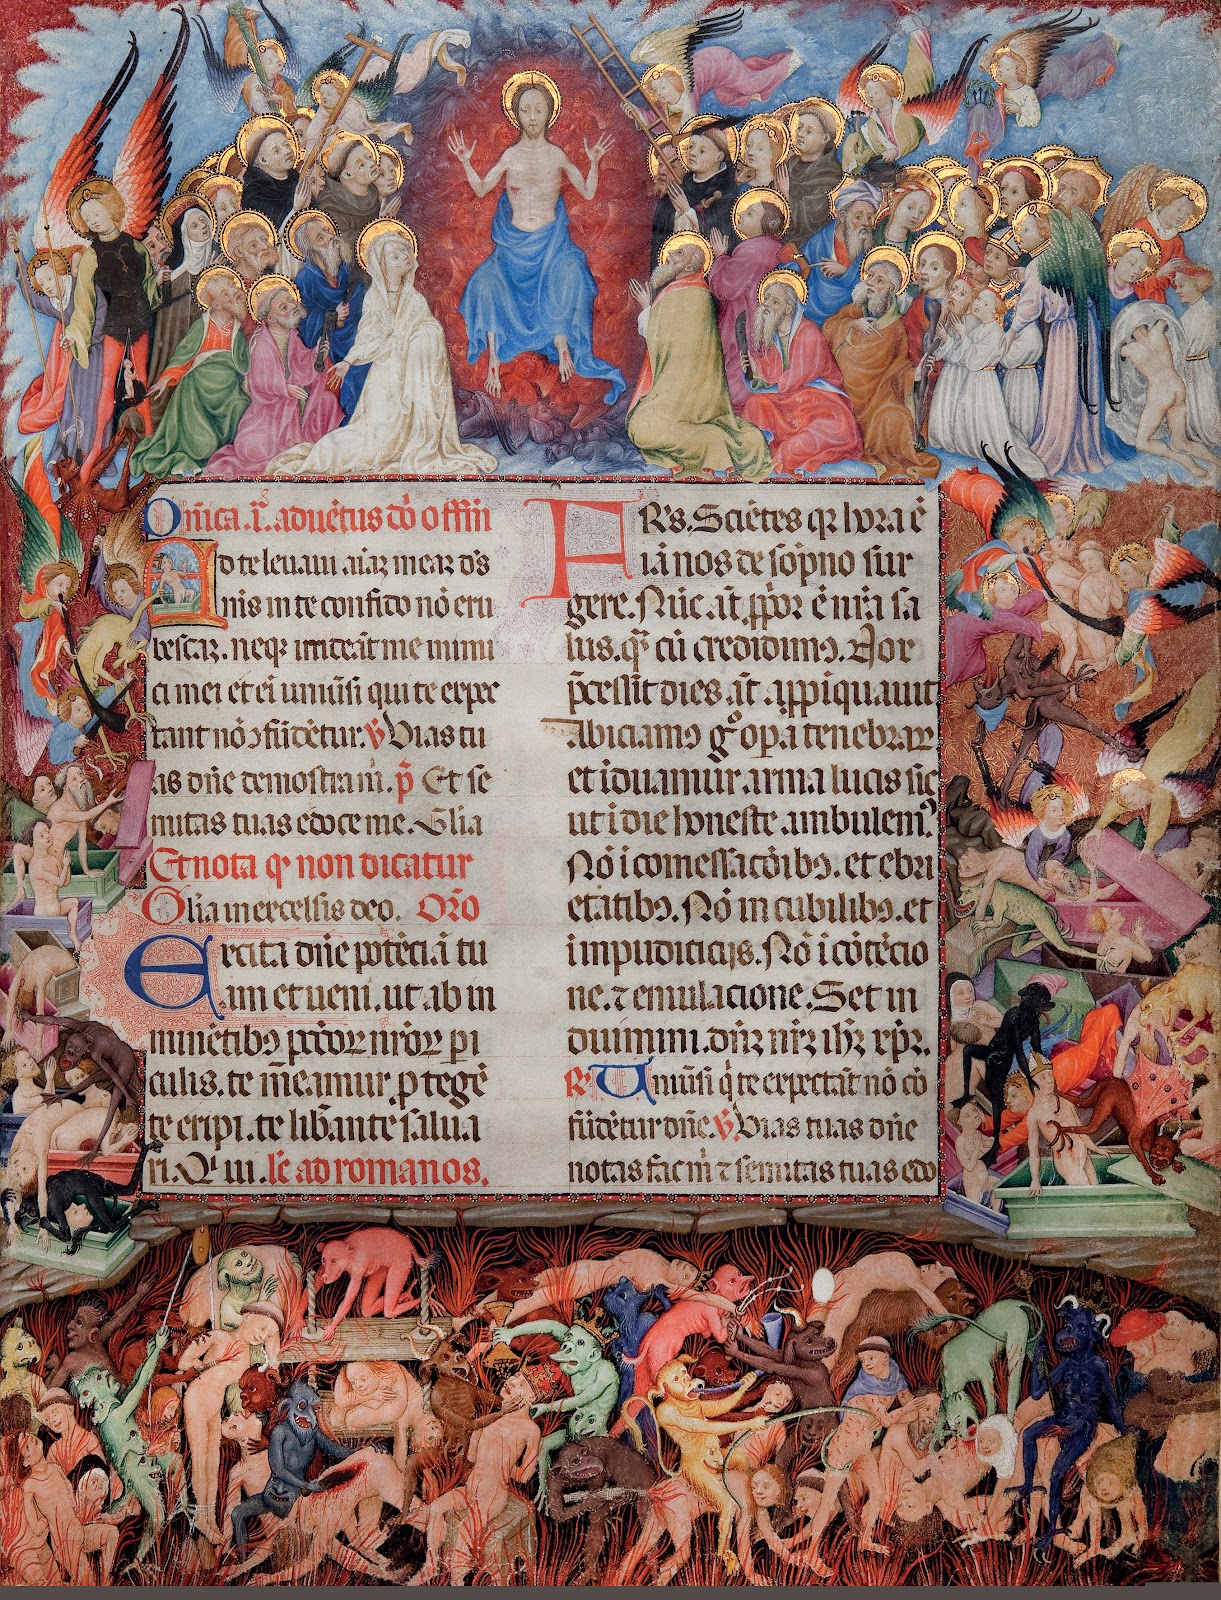 Dñica. í. aduẽtus dõ offm̃
Ad te leuaui aĩaꝫ meaꝫ d's
m's in te confido nõ eru
bescaꝫ. neqꝫ irrideãt me inimi
ci mei et eĩ uniũsi qui te expec
tant nõ ↄfũdẽtur. v̄ Vias tu
as dñe demostra m̃. p̄ Et se
mitas tuas edoce me. Glia
Et nota ꝙ non dicatur
Glia in excelsis deo. Orõ
Excita dñe potẽciã tu
am et ueni. ut ab in
minẽtibꝰ pctõꝝ nrõꝝ pi
culis. te m̃eamur ꝓtegẽ
te eripi. te libãnte salua
ri. Qi ui. lc̃ ad romanos.
FRs. Sciẽtes qꝛ hora ẽ
iã nos de sõpno sur
gere. Nũc aũt ꝓpiõr ẽ nrã sa
lus. qã cũ credidimꝰ. Nox
p̃cessit dies aũt appĩquauit
Abiciamꝰ gº opã tenebraꝝ
et ĩduamur arma lucis sic
ut ĩ die honeste ambulemꝰ.
Nõ ĩ comessacõibꝰ. et ebri
etatibꝰ. Nõ in cubilibꝰ. et
impudicicijs. Nõ ĩ cõtẽcio
ne. ⁊ emulacione. Set in
duimini. dñꝫ nrꝫ ihꝫ xpꝫ.
R. Uniũsi q̃ te expectãt nõ cõ
fũdẽtur dñe. v̄. Vias tuas dñe
notas fac m̃ ⁊ semitas tuas edo